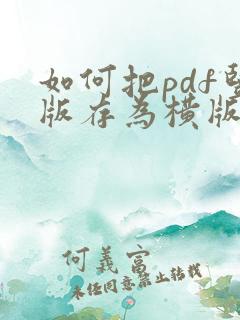 如何把pdf竖
版存为横版
何義富
未经同意禁止转载